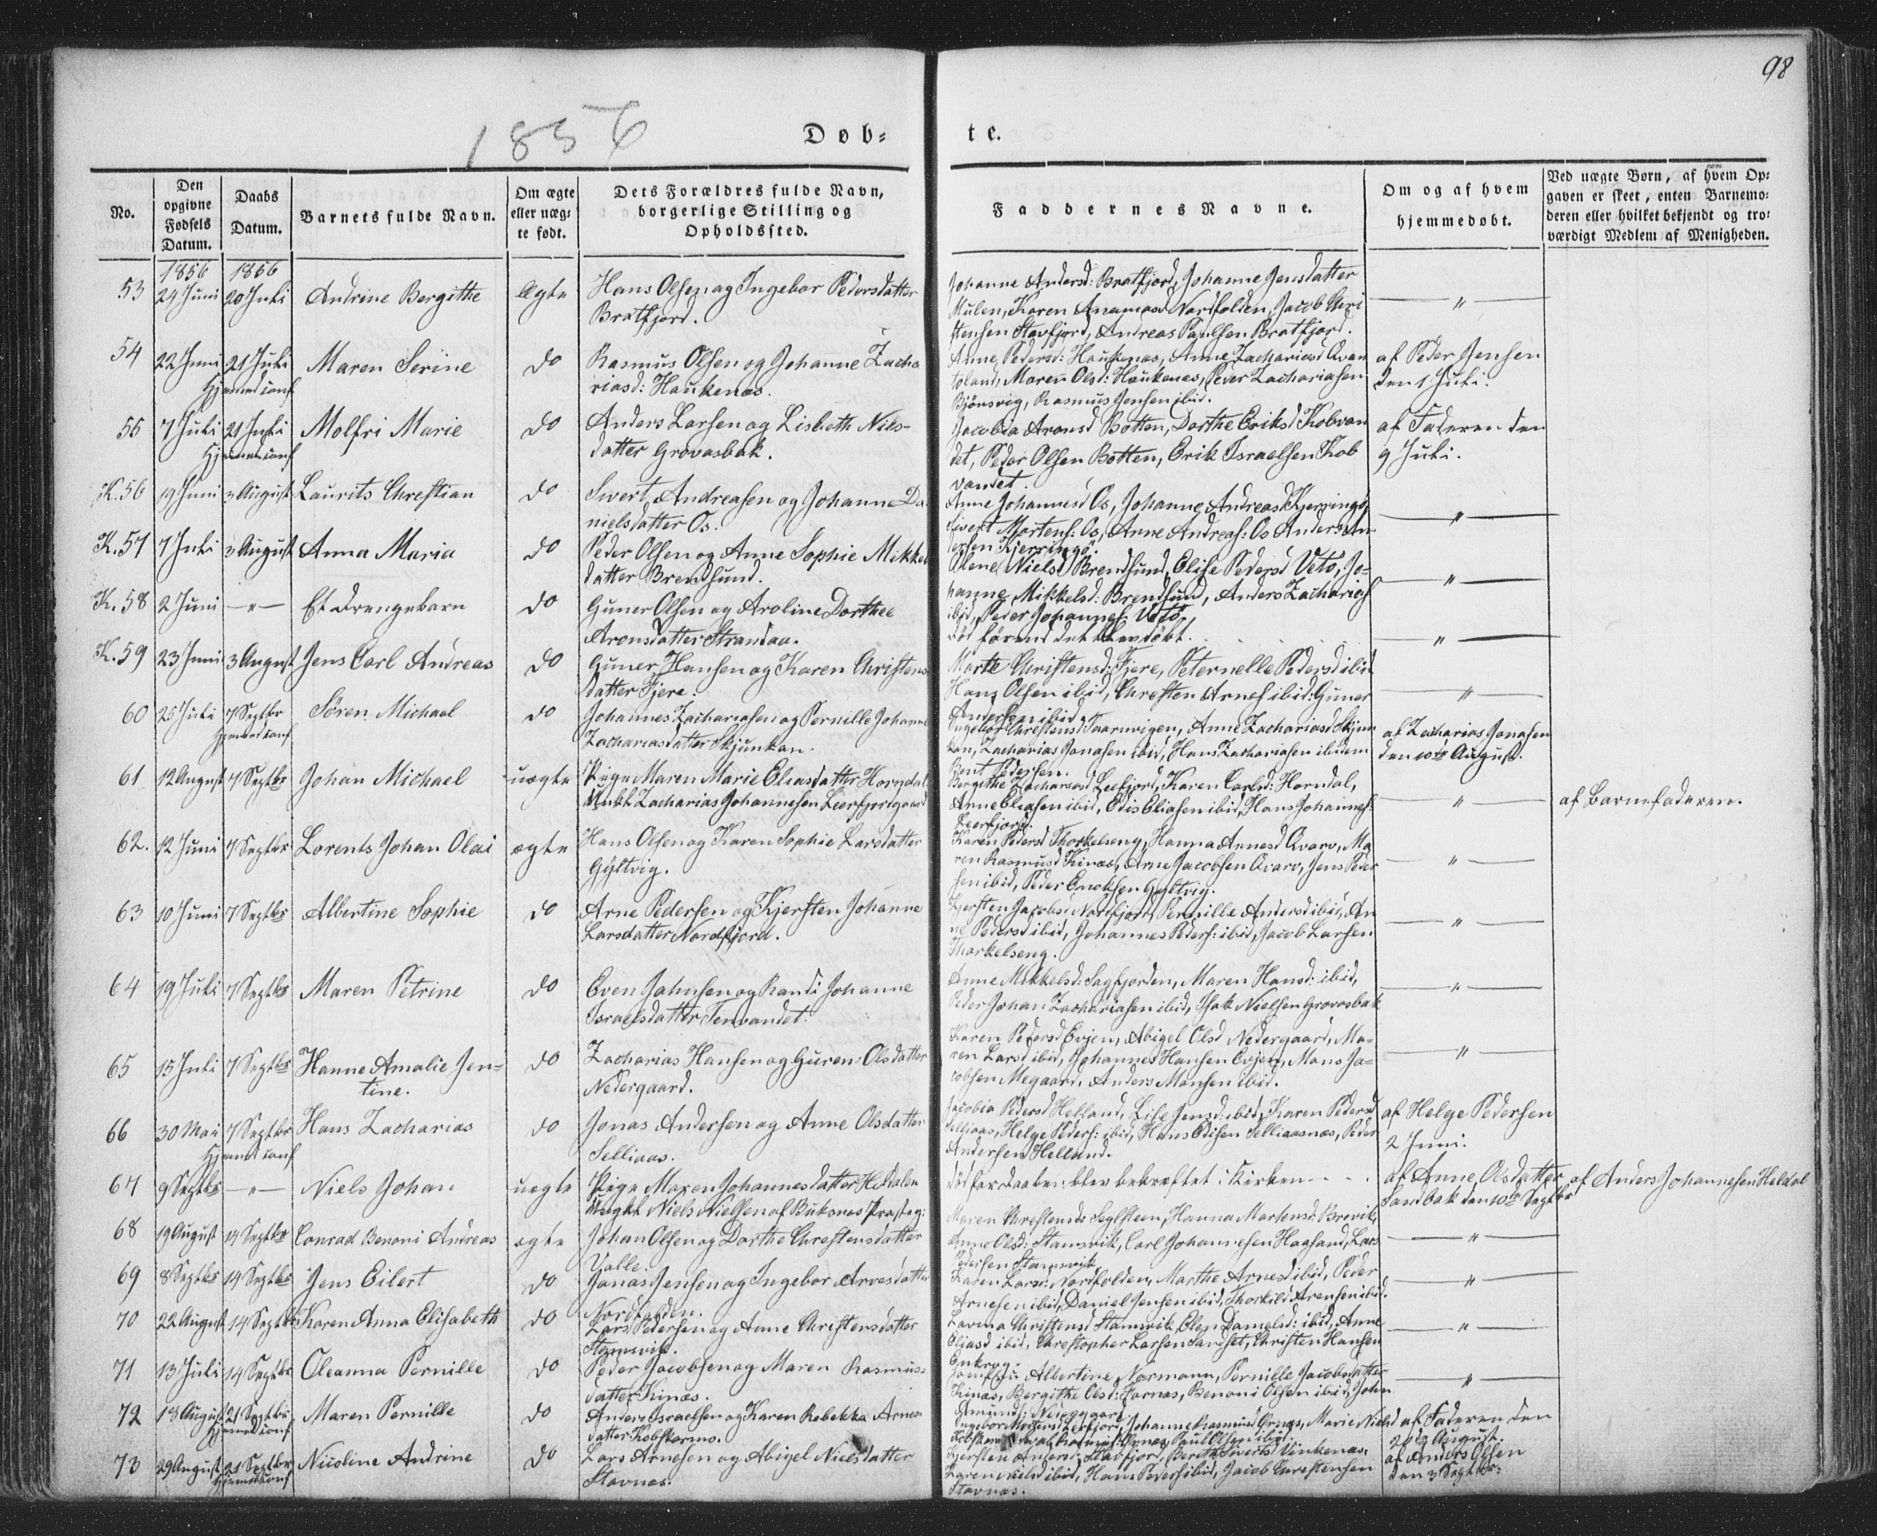 98
1856
Døb- te.
No.
Den opgivne Fødsels Datum.
Daabs Datum.
Barnets fulde Navn.
Om ægte eller uæg- te født.
Dets Forældres fulde Navn, borgerlige Stilling og Opholdssted.
Faddernes Navne.
Om og af hvem hjemmedøbt.
Ved uægte Børn, af hvem Op- gaven er skeet, enten Barnemo- deren eller hvilket bekjendt og tro- værdigt Medlem af Menigheden.
1856 1856
53 24 Juni 20 Juli Andrine Bergithe Ægte Hans Olsen og Ingebor Pedersdatter
Bratfjord.
Johanne Andersd: Bratfjord, Johanne Jensdatter
Mulen, Karen Nordfolden, Jacob Chri
stensen Stavfjord, Andreas Paulsen Bratfjord.
54 22 Juni 21 Juli Maren Serine do Rasmus Olsen og Johanne Zacha
Hjemmed conf riasd: Haukenæs.
Anne Pedersd: Haukenæs, Anne Zachariasd Qvan
toland, Maren Olsd: Haukenæs, Peder Zachariasen
Bjønsvig, Rasmus Jensen ibid.
af Peder Jensen
den 1 Juli.
55 7 Juli 21 Juli Molfri Marie do Anders Larsen og Lisbeth Nils-
Hjemmed conf datter Grovasbak.
Jacobia Aronsd Botten, Dorthe Eriksd Kobvan
det, Peder Olsen Botten, Erik Israelsen Kob
vandet.
af Faderen den
9 Juli.
K.56 19 Juni 3 August Laurits Chrestian do Sivert Andreasen og Johanne Da
nielsdatter Os.
Anne Johannesd Os, Johanne Andreasd Kjerringø,
Sivert Mortens: Os, Anne Andreas: Os Anders An
dersen Kjerringø.
K.57 7 Juli 3 August Anna Maria do Peder Olsen og Anne Sophie Mikkel
datter Brendsund.
Olene Nielsd Brendsund, Elise Pedersd Vetø, Jo-
hanne Mikkelsd: Brendsund, Anders Zacharias
ibid, Peder Johannes: Vetø.
K.58 2 Juni Et Drengebarn do Guner Olsen og Aroline Dorthee
Aronsdatter Strandaa.
død førend det blev døbt.
K.59 23 Juni 3 August Jens Carl Andreas do Guner Hansen og Karen Christens
datter Fjere.
Marte Christensd: Fjere, Peternelle Pedersd ibid
Hans Olsen ibid, Chresten Arnes ibid, Guner
Andersen ibid.
60 25 Juli 7 Septbr Søren Michael do Johannes Zachariasen og Pernille Johanne
Hjemmed conf Zachariasdatter Skjunkan.
Ingebor Chrestensd Taarnvigen, Anne Zachariasd Skjun
kan, Zacharias Jonasen ibid, Hans Zachariasen ibidem
Bent Pedersen.
af Zacharias Jonasen
den 10de August.
61 12 August 7 Septbr Johan Michael uægte Pige Maren Marie Eliasdatter Horndal
Ungkl Zacharias Johannesen Leerfjordgaard
Bergithe Zachariasd Leefjord, Karen Carlsd: Horndal,
Arne Eliasen ibid, Edis Eliasen ibid, Hans Johannes:
Leerfjord.
af Barnefaderen.
62. 12 Juni 7 Septbr Lorents Johan Olai ægte Hans Olsen og Karen Sophie Larsdatter
Gyltvig.
Karen Pedersd Thorkelseng, Hanna Arnesd Qvarv, Ma
ren Rasmusd Kinæs, Arne Jacobsen Qvarv, Jens Peder
sen ibid, Peder Enoksen Gyltvig.
63 10 Juni 7 Septbr Albertine Sophie do Arne Pedersen og Kjersten Johanne
Larsdatter Nordfjord.
Kjersten Jacobsd Nordfjord, Pernille Andersd ibid, An
ne Pedersd ibid, Johannes Peders: ibid, Jacob Larsen
Thorkelseng.
64 19 Juli 7 Septbr Maren Petrine do Even Johnsen og Randi Johanne
Israelsdatter Tenvandet.
Anne Mikkelsd: Sagfjorden, Maren Hansd: ibid,
Peder Johan Zachariasen ibid, Isak Nielsen Grovasbak
65 15 Juli 7 Septbr Hanne Amalie Jen-
tine.
do Zacharias Hansen og Guren Olsdatter
Nedergaard.
Karen Pedersd Evjen, Abigel Olsd Nedergaard, Ma-
ren Larsd ibid, Johannes Hansen Evjen, Mons Ja-
cobsen Megaard, Anders Monsen ibid.
66 30 Mai 7 Septbr Hans Zacharias do Jonas Andersen og Anne Olsdatter
Hjemmed conf Selliaas.
Jacobia Pedersd Helland, Lise Jensd: ibid, Karen Pedersd
Selliaas, Helge Peders: ibid, Hans Edisen Selliaasnæs, Peder
Andersen Helland.
af Helge Pedersen
2 Juni.
67 9 Septbr Niels Johan uægte Pige Maren Johannesdatter Heldalen
Ungkl Niels Nielsen af Buksnes Præsteg:
død før Daaben blev bekræftet i Kirken
af Anne Olsdatter
Sandbak den 10de Septbr
af Anders Johannesen Heldal
68 19 August 14 Septbr Conrad Benoni Andreas ægte Johan Olsen og Dorthe Chrestensdatter
Valle.
Maren Chrestensd: Seglsteen, Hanna Mortensd: Brevik,
Anne Olsd: Stamsvik, Carl Johannesen Haasand, Lars
Pedersen Stamsvik
69 8 Septbr 14 Septbr Jens Eilert do Jonas Jensen og Ingebor Arnesdatter
Nordfolden.
Karen Larsd: Nordfolden, Marthe Arnesd ibid, Peder
Arnesen ibid, Daniel Jensen ibid, Thorkild Arensen ibid.
70 22 August 14 Septbr Karen Anna Elisabeth do Lars Pedersen og Anne Christensdatter
Stamsvik.
Lavina Christensd Stamsvik, Elen Danielsd: ibid, Anne
Eliasd ibid, Chrestopher Larsen Sandset, Christen Hansen
71 13 Juli 14 Septbr Oleanna Pernille do Peder Jacobsen og Maren Rasmus-
datter Kinæs.
Albertine Normann, Pernille Jacobsdatter
Kinæs, Bergithe Olsd: Fornæs, Benoni Olsen ibid, John
Amunds: Nerreggaard
72 18 August 21 Septbr Maren Pernille do Anders Israelsen og Karen Rebekka Arnes
Hjemmed conf datter Kobskarmo.
Johanne Rasmusd Ørnes, Marie Nielsd
af Faderen den
20de August.
73 29 August 21 Septbr Nicoline Andrine do Lars Arnesen og Abigel Nielsdatter
Hjemmed conf Stavnæs.
Kjersten Andersd: Stavfjord, Berit Siverts: Vinkenæs
Karen Nielsd ibid, Hans Peders: ibid, Jacob Chrestensen
Stavnæs.
af Anders Olsen
den 3 Septbr.